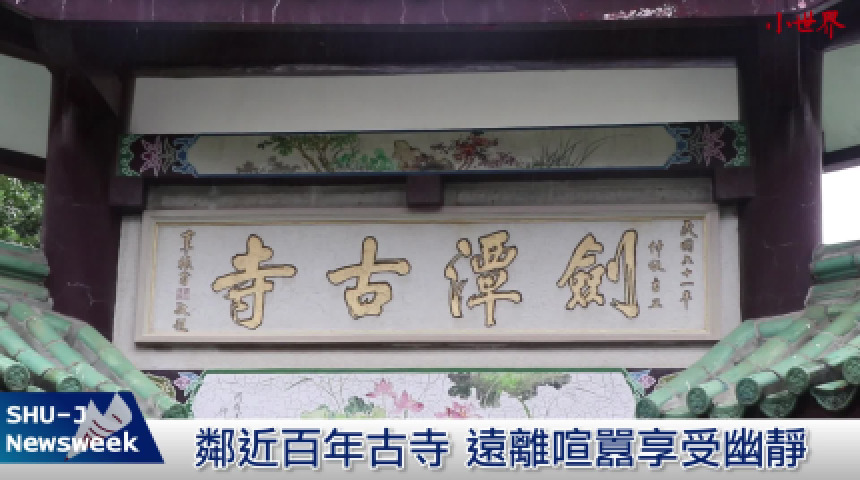 小世界
劍潭古寺
民國五十一年
SHU-J
Newsweek
鄰近百年古寺 遠離喧囂享受幽靜